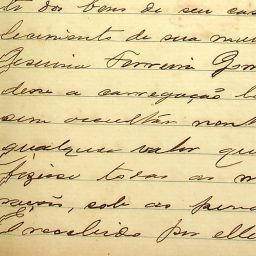 te dos bens de seu cas
lecimento de sua mu
Ferreira Gom
desse a carregação
sem occultar
qualquer valor que
fizesse todas as
sob as penas
E recebido por elle